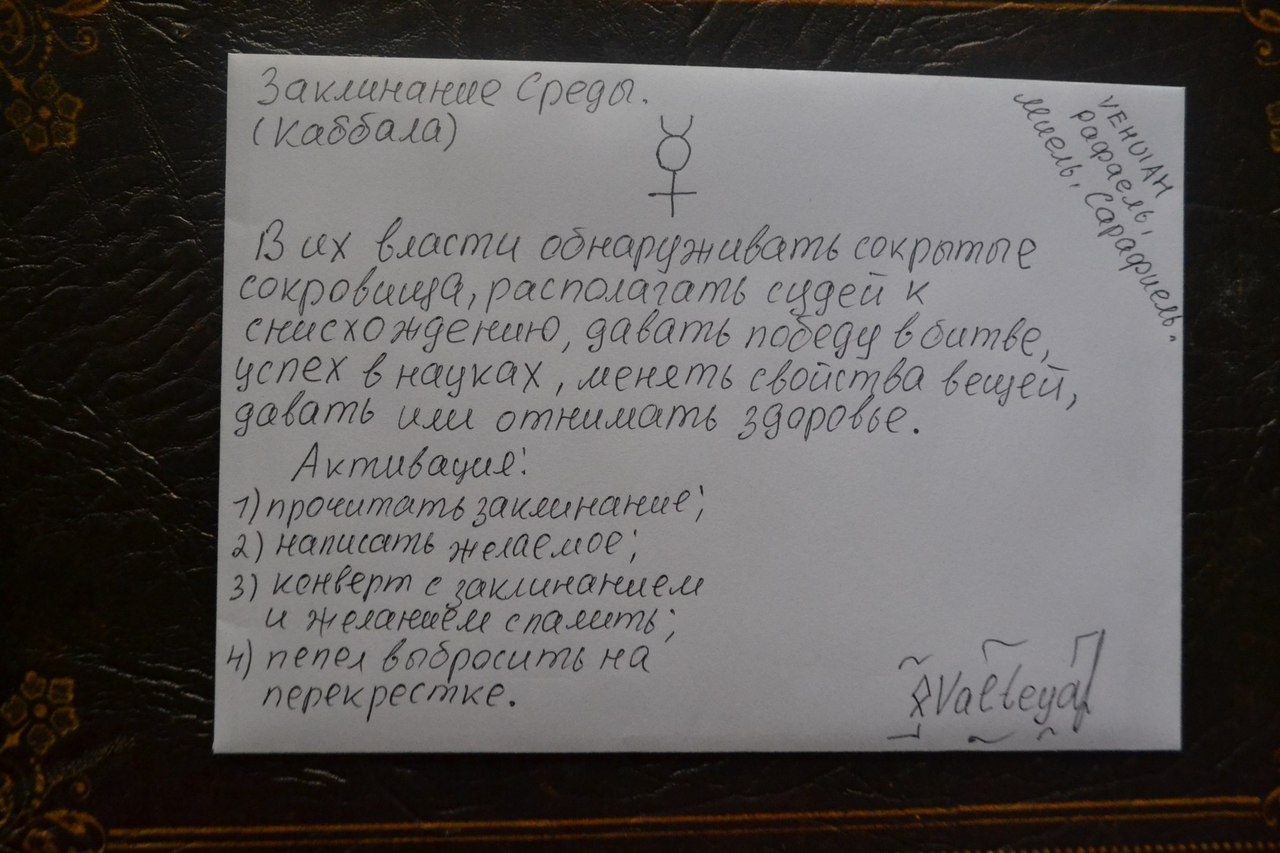 Заклинание Среды.
(Каббала)
VEHUIAH
Рафаель,
Миель, Сарафиель.
В их власти обнаруживать сокрытые
сокровища, располагать судей к
снисхождению, давать победу в битве,
успех в науках, менять свойства вещей,
давать или отнимать здоровье.
Активация:
1) прочитать заклинание;
2) написать желаемое;
3) конверт с заклинанием
и желанием спалить;
4) пепел выбросить на
перекрестке.
Valteya